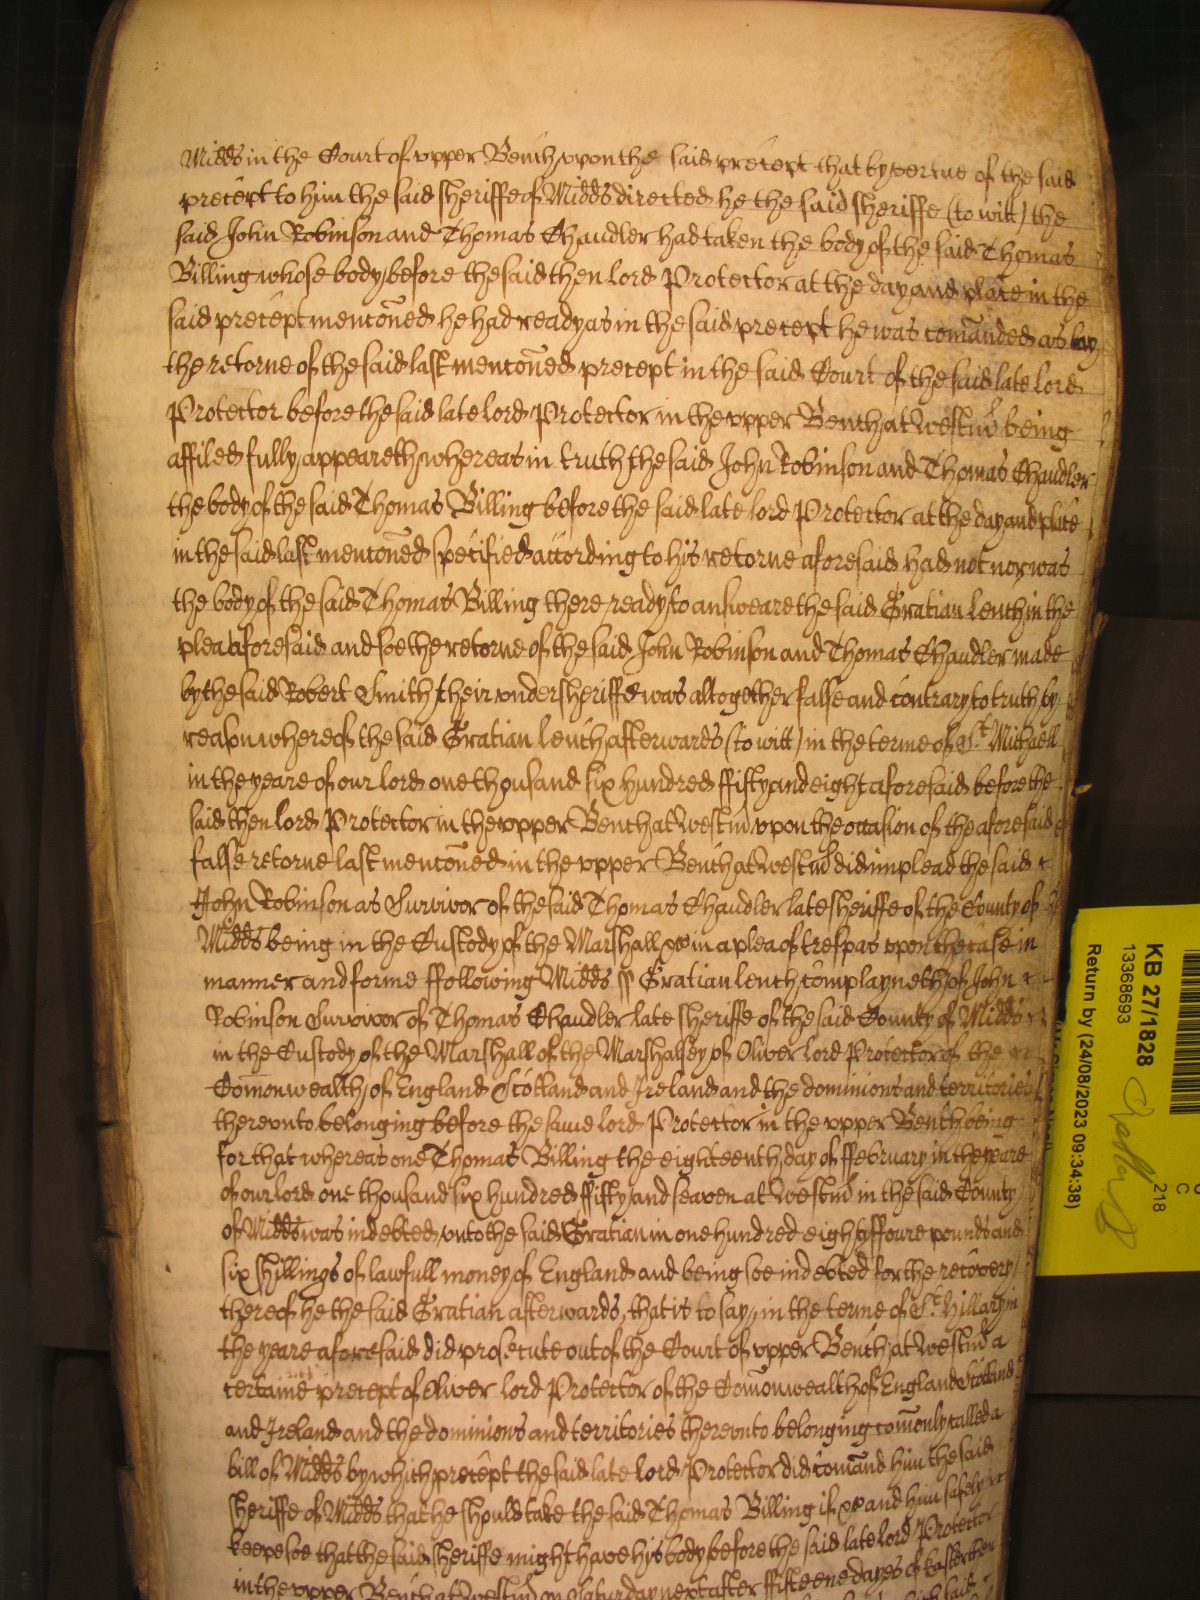 Midds in the Court of upper Bench upon the said precept that by vertue of the said
precept to him the said sheriffe of Midds directed he the said sheriffe (to witt) the
said John Robinson and Thomas Chaudler had taken the body of the said Thomas
Billing whose body before the said then lord Protector at the day and place in the
said precept menconed he had ready as in the said precept he was comanded as by
the retorne of the said last menconed precept in the said Court of the said late lord
Protector before the said late lord Protector in the upper Bench at Westm being
affiled fully appeareth whereas in truth the said John Robinson and Thomas Chaudler
the body of the said Thomas Billing before the said late lord Protector at the day and place
in the said last menconed specified according to his retorne aforesaid had not nor was
the body of the said Thomas Billing there ready to answeare the said Gratian Lench in the
plea aforesaid and soe the retorne of the said John Robinson and Thomas Chaudler made
by the said Robert Smith their undersheriffe was altogether false and contrary to truth by
reason whereof the said Gratian Lench afterwards (to witt) in the terme of St Michaell
in the yeare of our lord one thousand six hundred fifty and eight aforesaid before the
said then lord Protector in the upper Bench at Westm upon the occasion of the aforesaid
false retorne last menconed in the upper Bench at Westm did implead the said
John Robinson as Survivor of the said Thomas Chaudler late sheriffe of the County of
Midds being in the Custody of the Marshall &c in a plea of trespas upon the case in
manner and forme ffollowing Midds ss Gratian Lench complayneth of John
Robinson Survivor of Thomas Chaudler late sheriffe of the said County of Midds
in the Custody of the Marshall of the Marshalsey of Oliver lord Protector of the
Comonwealth of England Scotland and Ireland and the dominions and territories
thereunto belonging before the same lord Protector in the upper Bench being
for that whereas one Thomas Billing the eighteenth day of ffebruary in the yeare
of our lord one thousand six hundred ffifty and seaven at Westm in the said County
of Midds was indebted unto the said Gratian in one hundred eighty ffoure pounds and
six shillings of lawfull money of England and being soe indebted for the recovery
thereof he the said Gratian afterwards, that is to say, in the terme of St Hillary in
the yeare aforesaid did prosecute out of the Court of upper Bench at Westm a
certaine precept of Oliver lord Protector of the Comonwealth of England Scotland
and Ireland and the dominions and territories thereunto belonging comonly called a
bill of Midds by which precept the said late lord Protector did comand him the said
sheriffe of Midds that he should take the said Thomas Billing if &c and him safely
keepe soe that the said sheriffe might have his body before the said late lord Protector
in the upper Bench at Westm on Saturday next after ffifteene dayes of Easter then
KB 27/1828
13368693
Return by (24/08/2023 09:34:38)
218
C